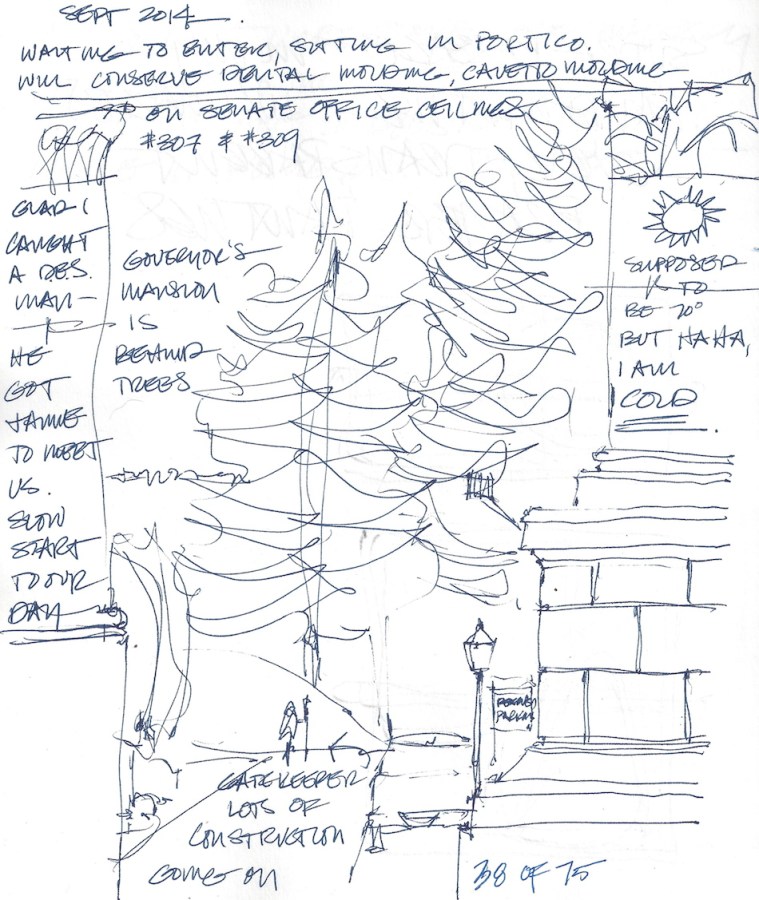 SEPT 2014.
WAITING TO ENTER, SITTING IN PORTICO.
WILL CONSERVE DENTAL MOLDING, CAVETTO MOLDING
ON SENATE OFFICE CEILINGS
#307 & #309
GLAD I
CAUGHT
A D.E.S.
MAN –
HE
GOT
JAMIE
TO MEET
US.
SLOW
START
TO OUR
DAY
GOVERNOR'S
MANSION
IS
BEHIND
TREES
SUPPOSED
TO
BE 70°
BUT HAHA,
I AM
COLD
PARKING
GATEKEEPER
LOTS OF
CONSTRUCTION
GOING ON
38 OF 75